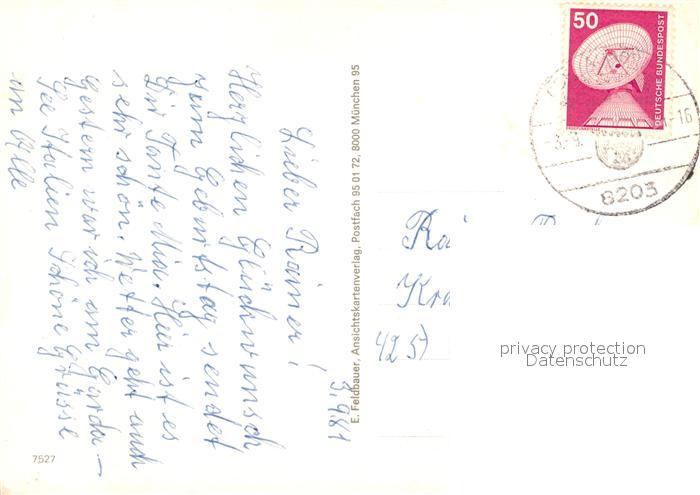 3.9.81
Lieber Rainer!
Herzlichen Glückwunsch
zum Geburtstag sendet
Dir Tante Mia. Hier ist es
sehr schön. Wetter geht auch
Gestern war ich am Garda-
See Italien Schöne Grüsse
an Alle
E. Feldbauer, Ansichtskartenverlag, Postfach 95 01 72, 8000 München 95
7527
50
DEUTSCHE BUNDESPOST
-16
8203
Kra
4257
privacy protection
Datenschutz